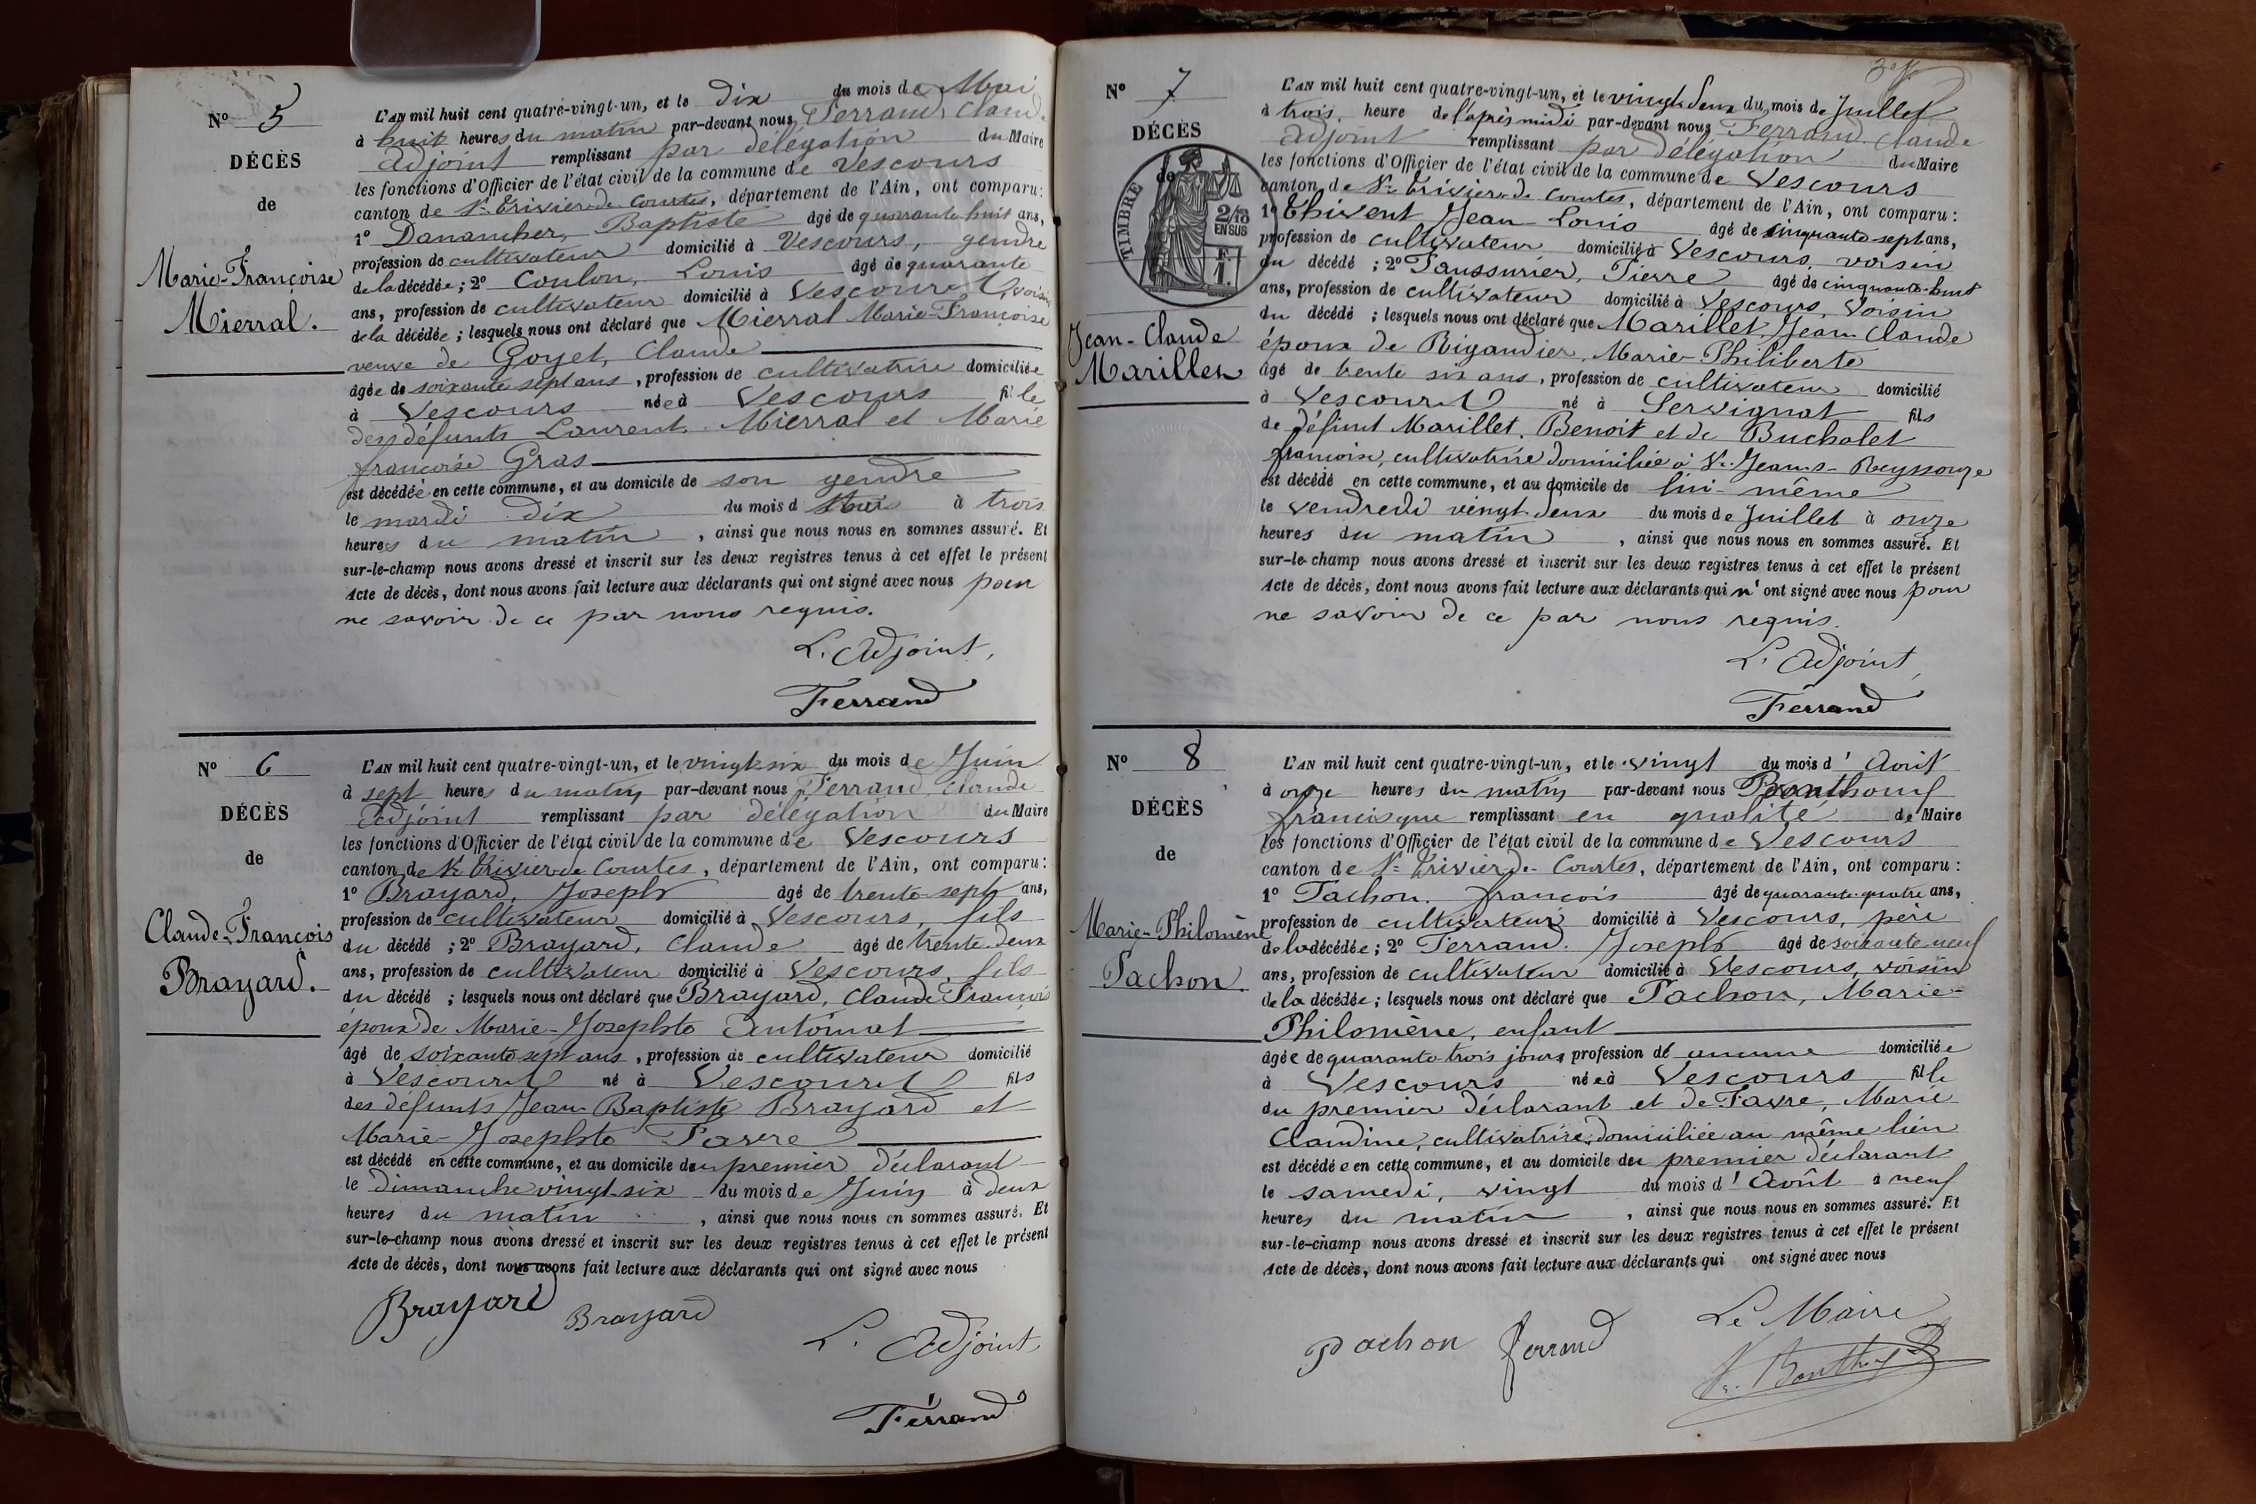 Nº 5
DÉCÈS
de
Marie-Françoise
Mierral.
L'AN mil huit cent quatre-vingt-un, et le dix du mois de Mai
à huit heures du matin par-devant nous Ferrand, Claude
adjoint remplissant par délégation du Maire
les fonctions d'Officier de l'état civil de la commune de Vescours
canton de St Trivier-de Courtes, département de l'Ain, ont comparu:
1º Danancher, Baptiste âgé de quarante-huit ans,
profession de cultivateur domicilié à Vescours, gendre
de la décédée; 2º Coulon, Louis âgé de quarante
ans, profession de cultivateur domicilié à Vescours, voisin
de la décédée; lesquels nous ont déclaré que Mierral Marie-Françoise
veuve de Goyet, Claude
âgée de soixante sept ans, profession de cultivatrice domiciliée
à Vescours née à Vescours fille
des défunts Laurent Mierral et Marie
françoise Gras
est décédée en cette commune, et au domicile de son gendre
le mardi dix du mois d Mai à trois
heures du matin, ainsi que nous nous en sommes assuré. Et
sur-le-champ nous avons dressé et inscrit sur les deux registres tenus à cet effet le présent
Acte de décès, dont nous avons fait lecture aux déclarants qui ont signé avec nous pour
ne savoir de ce par nous requis.
L'Adjoint,
Ferrand
Nº 6
DÉCÈS
de
Claude-François
Brayard.
L'AN mil huit cent quatre-vingt-un, et le vingt-six du mois de Juin
à sept heures du matin par-devant nous Ferrand, Claude
adjoint remplissant par délégation du Maire
les fonctions d'Officier de l'état civil de la commune de Vescours
canton de St Trivier-de Courtes, département de l'Ain, ont comparu:
1º Brayard, Joseph âgé de trente-sept ans,
profession de cultivateur domicilié à Vescours, fils
du décédé; 2º Brayard, Claude âgé de trente-deux
ans, profession de cultivateur domicilié à Vescours, fils
du décédé; lesquels nous ont déclaré que Brayard, Claude François
époux de Marie-Josephte Antoinat
âgé de soixante sept ans, profession de cultivateur domicilié
à Vescours né à Vescours fils
des défunts Jean-Baptiste Brayard et
Marie-Josephte Favre
est décédé en cette commune, et au domicile du premier déclarant
le dimanche vingt-six du mois de Juin à deux
heures du matin, ainsi que nous nous en sommes assuré. Et
sur-le-champ nous avons dressé et inscrit sur les deux registres tenus à cet effet le présent
Acte de décès, dont nous avons fait lecture aux déclarants qui ont signé avec nous
Brayard Brayard
L'Adjoint
Ferrand
Nº 7
DÉCÈS
de
TIMBRE
2/10
EN SUS
F.
1.
Jean-Claude
Marillet
L'AN mil huit cent quatre-vingt-un, et le vingt deux du mois de Juillet
à trois heure de l'après midi par-devant nous Ferrand Claude
adjoint remplissant par délégation du Maire
les fonctions d'Officier de l'état civil de la commune de Vescours
canton de St Trivier-de Courtes, département de l'Ain, ont comparu:
1º Thivent Jean Louis âgé de cinquante-sept ans,
profession de cultivateur domicilié à Vescours, voisin
du décédé; 2º Paussurier, Pierre âgé de cinquante-huit
ans, profession de cultivateur domicilié à Vescours, voisin
du décédé; lesquels nous ont déclaré que Marillet, Jean Claude
époux de Rigaudier, Marie-Philiberte
âgé de trente six ans, profession de cultivateur domicilié
à Vescours né à Servignat fils
de défunt Marillet, Benoit et de Buchalet
françoise, cultivatrice domiciliée à St. Jean-s-Reyssouze
est décédé en cette commune, et au domicile de lui-même
le vendredi vingt-deux du mois de Juillet à onze
heures du matin, ainsi que nous nous en sommes assuré. Et
sur-le-champ nous avons dressé et inscrit sur les deux registres tenus à cet effet le présent
Acte de décès, dont nous avons fait lecture aux déclarants qui n'ont signé avec nous pour
ne savoir de ce par nous requis.
L'Adjoint,
Ferrand
Nº 8
DÉCÈS
de
Marie-Philomène
Pachon.
L'AN mil huit cent quatre-vingt-un, et le vingt du mois d'Août
à onze heures du matin par-devant nous
francisque remplissant en qualité de Maire
les fonctions d'Officier de l'état civil de la commune de Vescours
canton de St Trivier-de Courtes, département de l'Ain, ont comparu:
1º Pachon, françois âgé de quarante-quatre ans,
profession de cultivateur domicilié à Vescours, père
de la décédée; 2º Ferrand, Joseph âgé de soixante neuf
ans, profession de cultivateur domicilié à Vescours, voisin
de la décédée; lesquels nous ont déclaré que Pachon, Marie-
Philomène, enfant
âgée de quarante-trois jours profession de aucune domiciliée
à Vescours née à Vescours fille
du premier déclarant et de Favre, Marie
Claudine, cultivatrice domiciliée au même lieu
est décédée en cette commune, et au domicile du premier déclarant
le samedi, vingt du mois d'Août à neuf
heures du matin, ainsi que nous nous en sommes assuré. Et
sur-le-champ nous avons dressé et inscrit sur les deux registres tenus à cet effet le présent
Acte de décès, dont nous avons fait lecture aux déclarants qui ont signé avec nous
Pachon ferrand
Le Maire